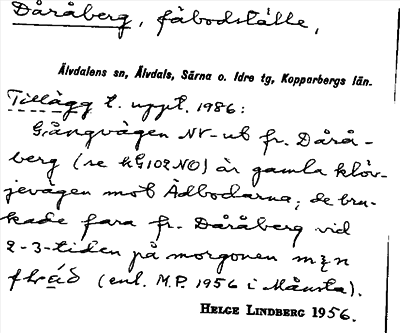 Dåråberg, fäbodställe,
Älvdalens sn, Älvdals, Särna o. Idre tg, Kopparbergs län.
Tillägg t. uppt. 1986:
Gångvägen NV-ut fr. Dårå-
berg (se kG102NO) är gamla klöv-
jevägen mot Ådbodarna; de bru-
kade fara fr. Dåråberg vid
2-3-tiden på morgonen
(enl. M.P. 1956 i Månsta).
HELGE LINDBERG 1956.